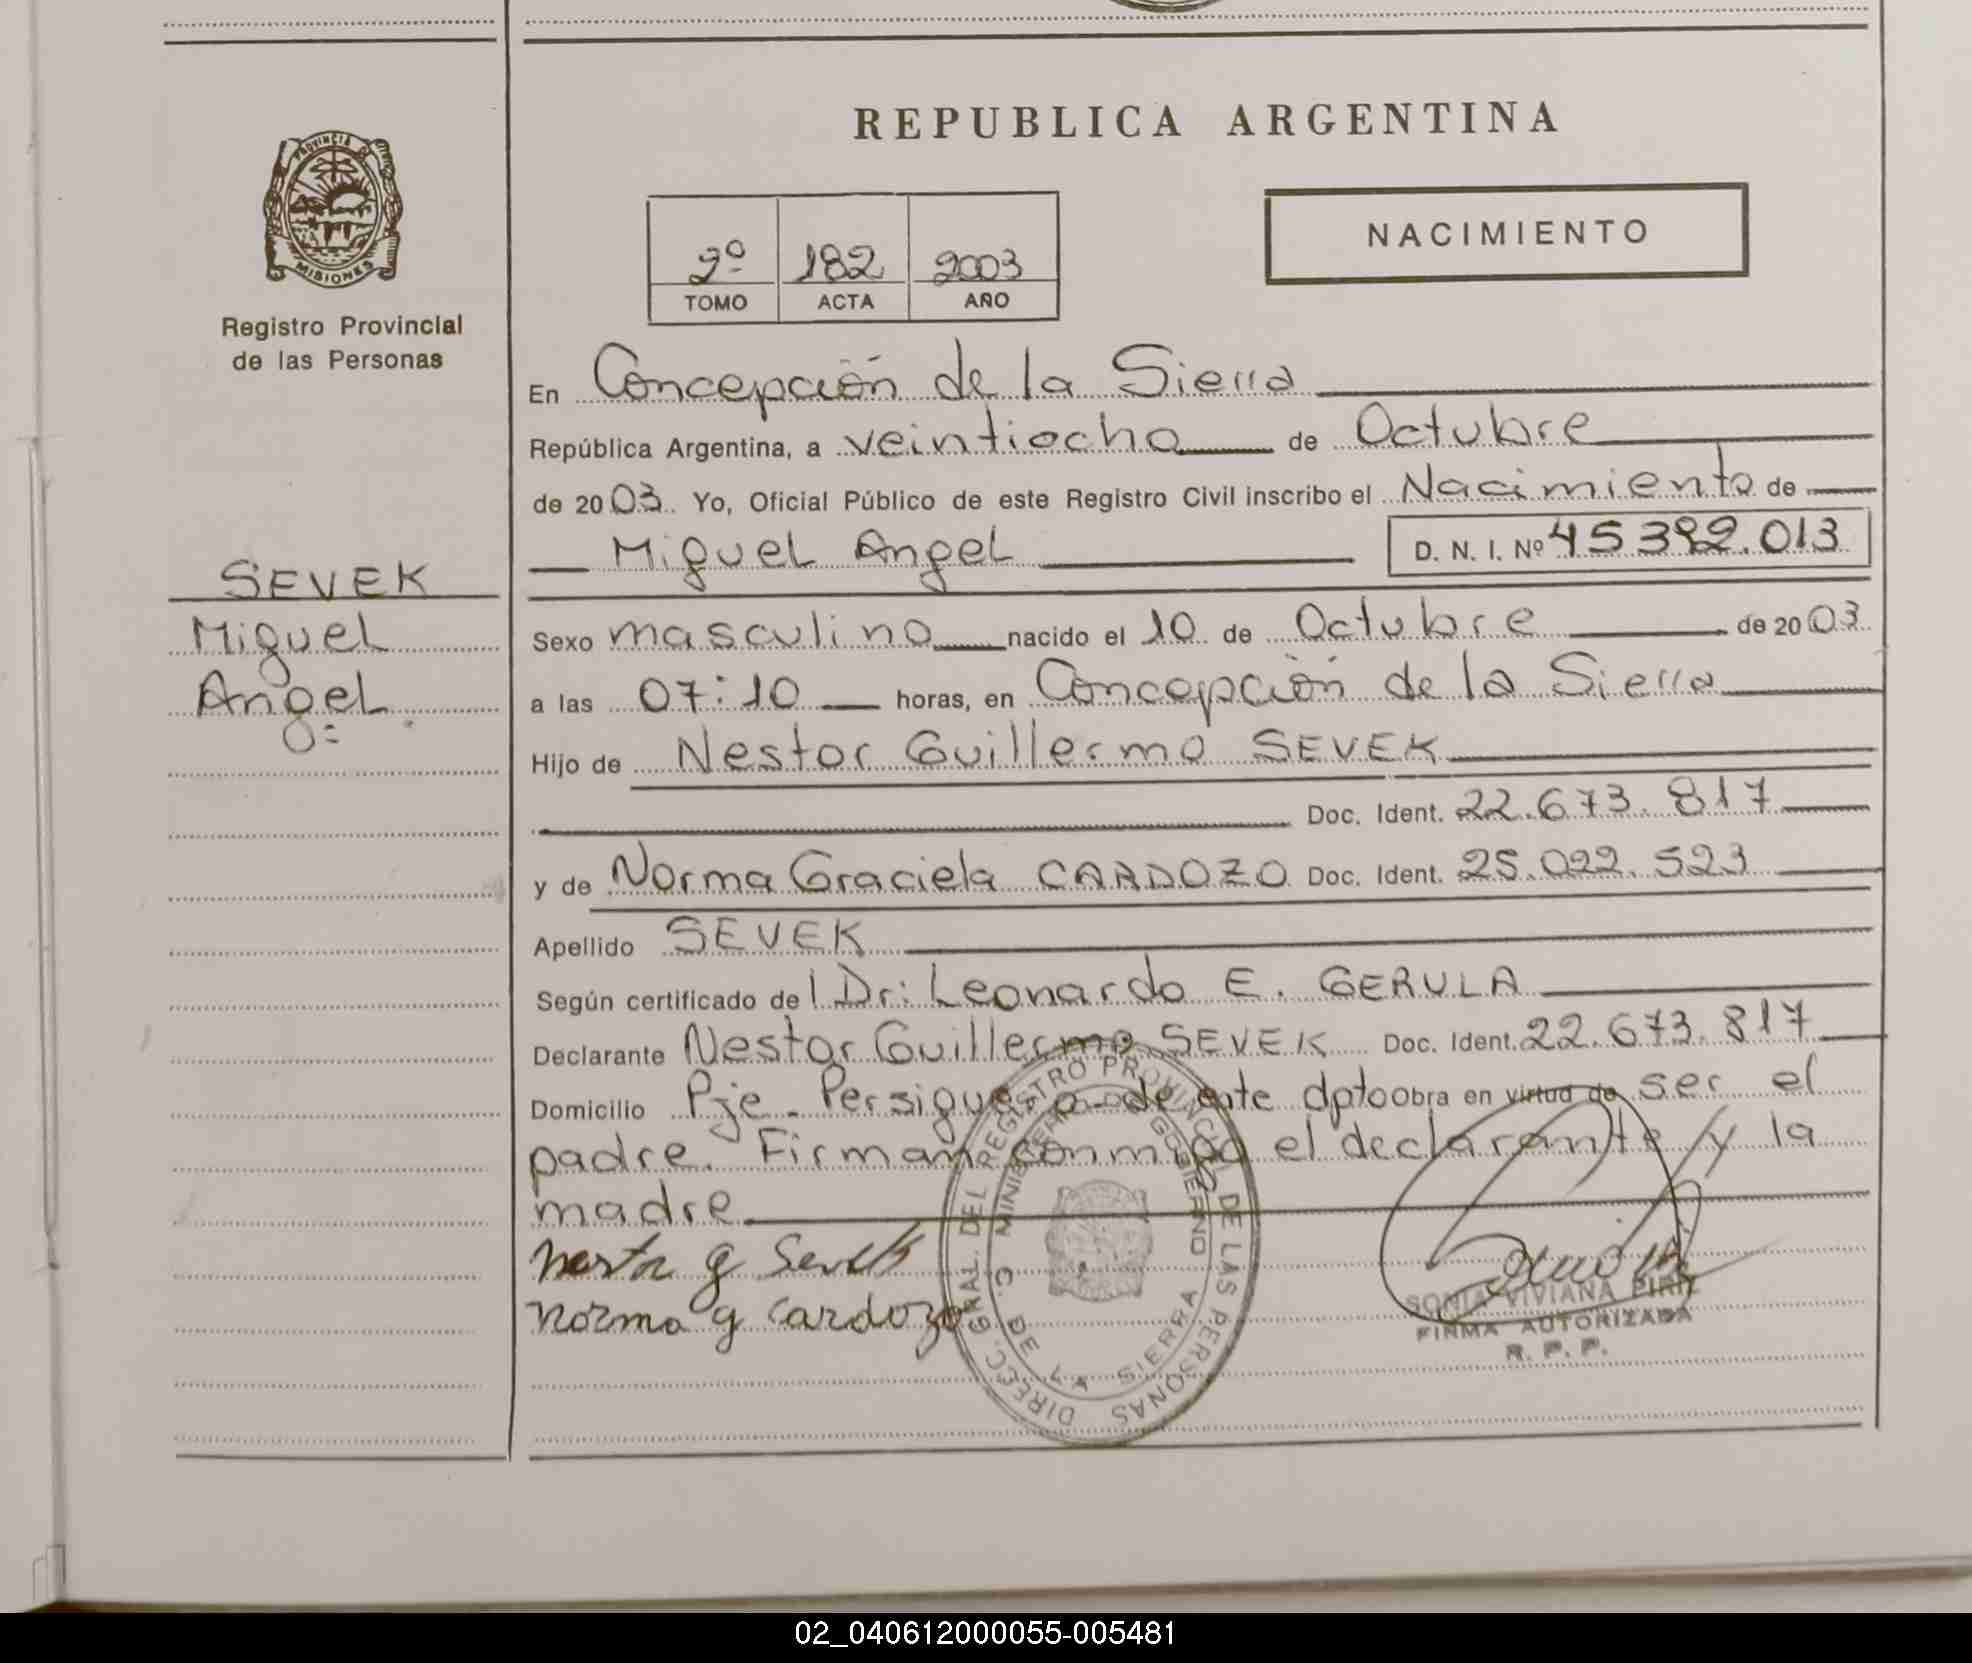 REPUBLICA ARGENTINA
PROVINCIA DE MISIONES
Registro Provincial
de las Personas
2º 182 2003
TOMO ACTA AÑO
NACIMIENTO
SEVEK
Miguel
Angel
En Concepción de la Sierra
República Argentina, a veintiocho de Octubre
de 2003. Yo, Oficial Público de este Registro Civil inscribo el Nacimiento de
Miguel Angel D. N. I. Nº 45382.013
Sexo masculino nacido el 10 de Octubre de 2003
a las 07:10 horas, en Concepción de la Sierra
Hijo de Nestor Guillermo SEVEK
Doc. Ident. 22.673.817
y de Norma Graciela CARDOZO Doc. Ident. 25.022.523
Apellido SEVEK
Según certificado del Dr: Leonardo E. GERULA
Declarante Nestor Guillermo SEVEK Doc. Ident. 22.673.817
Domicilio Pje. Persiguero - de este dpto obra en virtud de ser el
padre. Firman conmigo el declarante y la
madre
Nestor g Sevek
Norma g Cardozo
DIRECC. GRAL. DEL REGISTRO PROVINCIAL DE LAS PERSONAS
MINISTERIO DE GOBIERNO
C. DE LA SIERRA
SONIA VIVIANA PIRIZ
FIRMA AUTORIZADA
R. P. P.
02_040612000055-005481